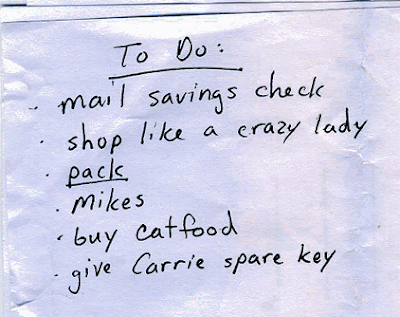 To Do:
· mail savings check
· shop like a crazy lady
· pack
· Mikes
· buy catfood
· give Carrie spare key